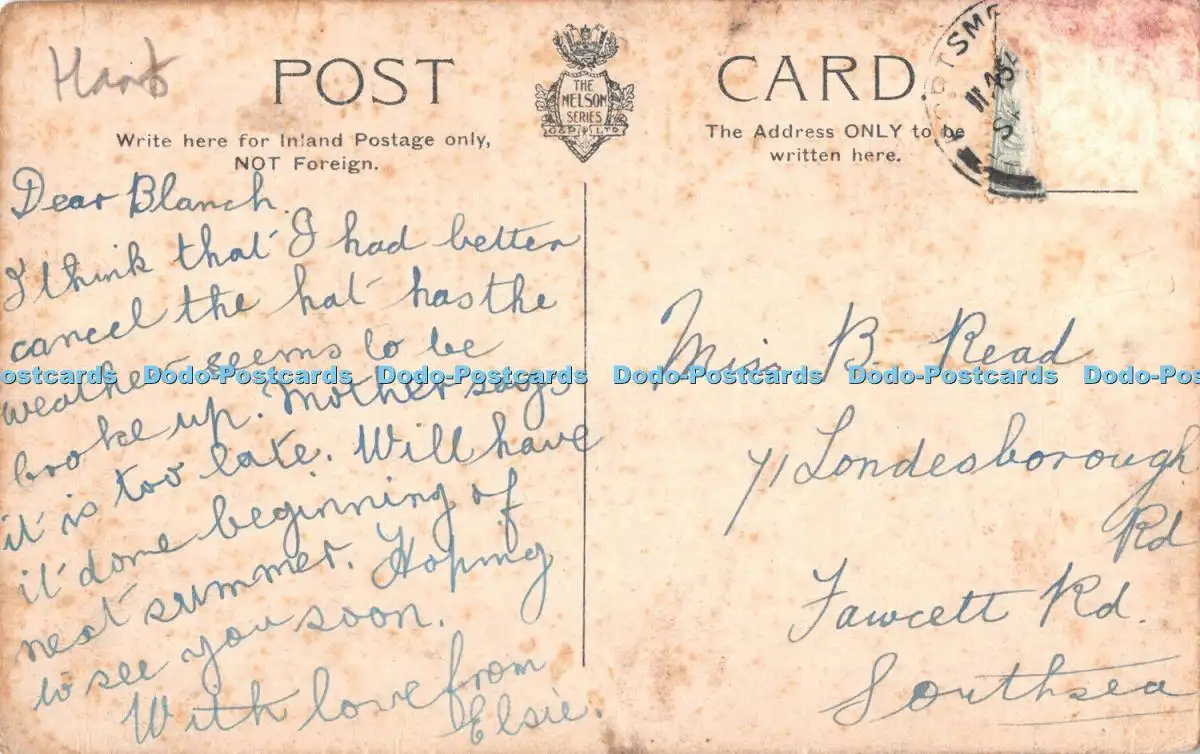 Hants
POST CARD.
THE
NELSON
SERIES
G&P LTD
Write here for Inland Postage only,
NOT Foreign.
The Address ONLY to be
written here.
PORTSM
11.45
Dear Blanch.
I think that I had better
cancel the hat has the
weather seems to be
broke up. Mother says
it is too late. Will have
it done beginning of
next summer. Hoping
to see you soon.
With love from
Elsie.
Miss B. Read
71 Londesborough
Rd
Fawcett Rd.
Southsea
ostcards Dodo-Postcards Dodo-Postcards Dodo-Postcards Dodo-Postcards Dodo-Post